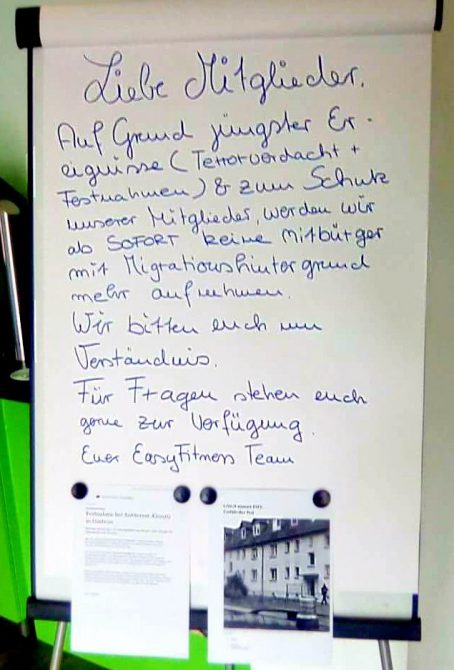 Liebe Mitglieder.
Auf Grund jüngster Er-
eignisse (Terrorverdacht +
Festnahmen) & zum Schutz
unserer Mitglieder, werden wir
ab SOFORT keine Mitbürger
mit Migrationshintergrund
mehr aufnehmen.
Wir bitten euch um
Verständnis.
Für Fragen stehen euch
gerne zur Verfügung.
Euer EasyFitness Team